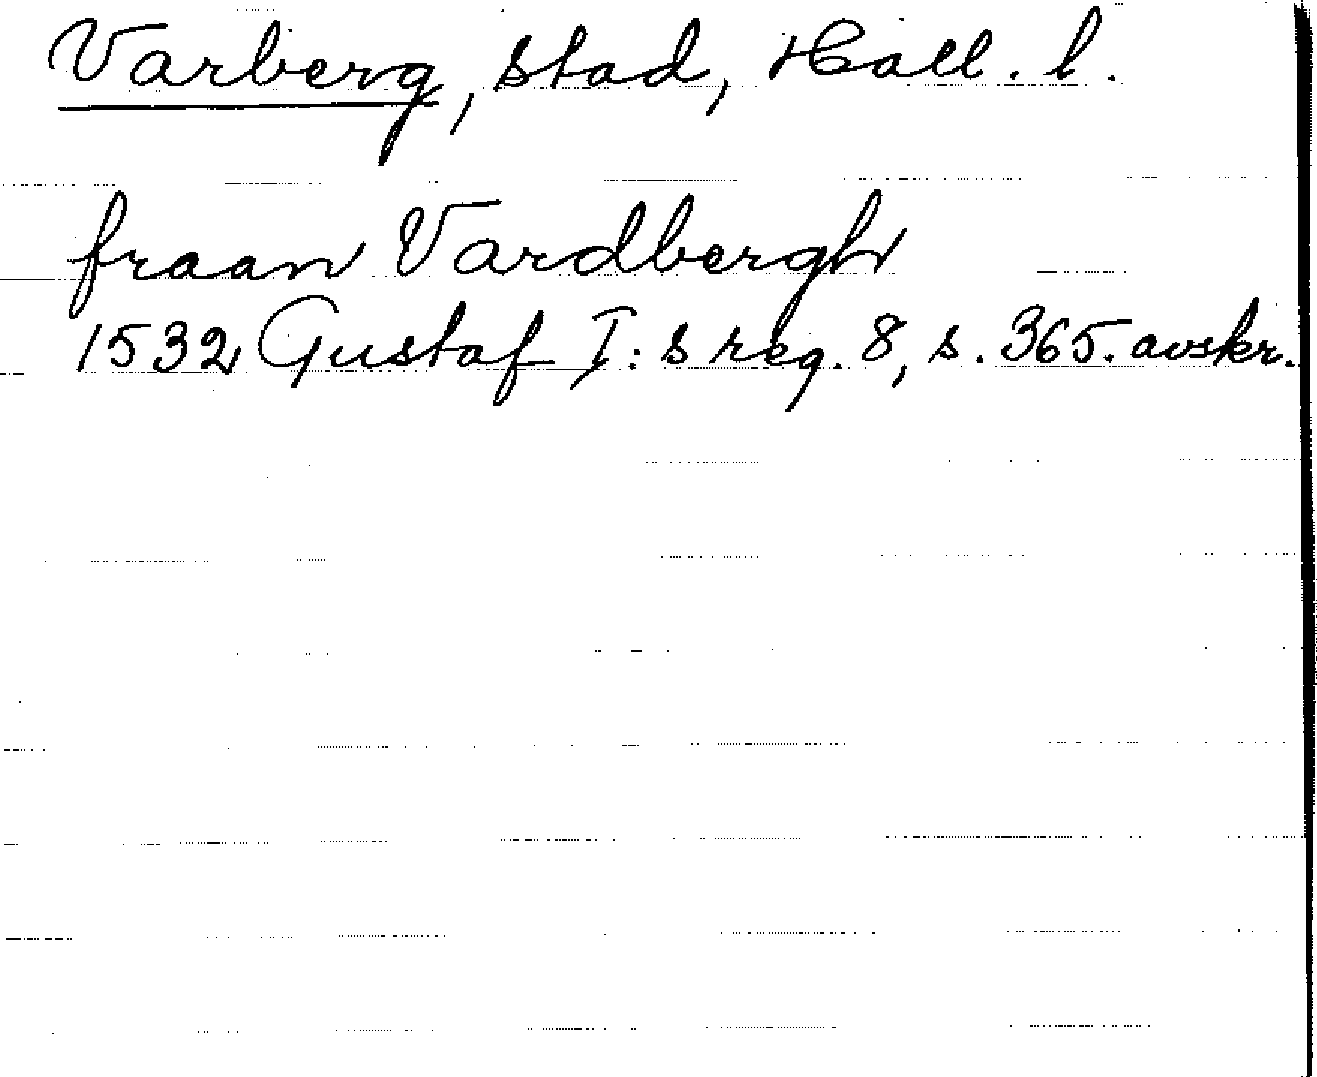 Varberg, stad, Hall. l.
fraan Vardbergh
1532 Gustaf I:s reg. 8, s. 365. avskr.